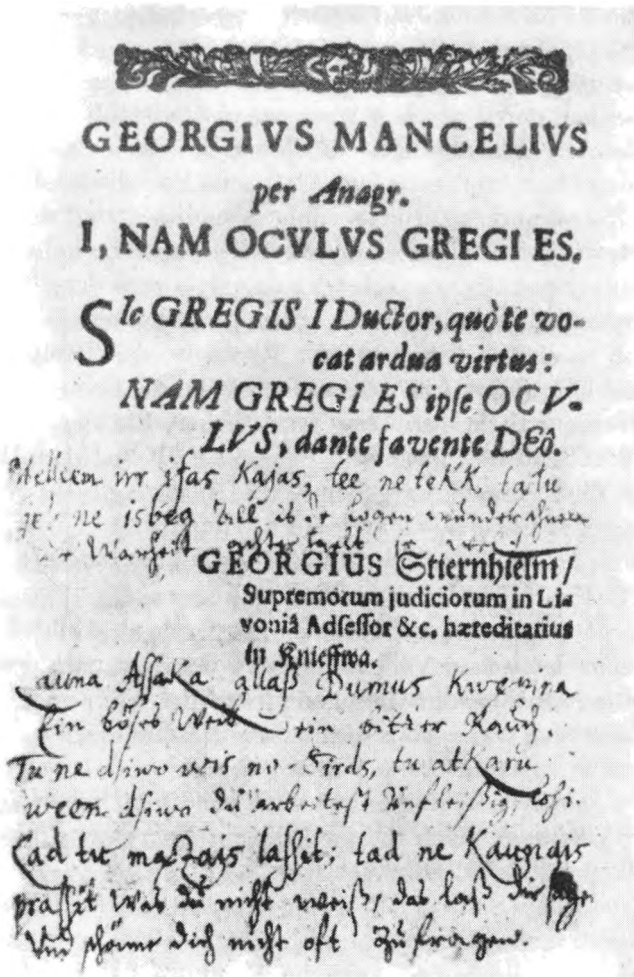 GEORGIVS MANCELIVS
per Anagr.
I, NAM OCVLVS GREGI ES.
SIc GREGIS I Ductor, quò te vo-
cat ardua virtus:
NAM GREGI ES ipſe OCV-
LVS, dante favente DEô.
irr iſas Kajas, tee ne tekk tatu
ne isbeg
Warheit
GEORGIUS Stiernhielm/
Supremorum judiciorum in Li-
voniâ Adſeſſor &c. hæreditarius
in Knieffwa.
auna Aſſara allaß Dumus Kwepina
Ein böses Weib ein bitter Rauch.
Tu ne dſiwo wis no Sirds, tu atkaru
ween dſiwo du arbeiteſt Unfleißig
Cad tu maſſais laſſit; tad ne Kaunais
praſſit Was du nicht weiß, das laß dir ſage
Und ſchäme dich nicht oft zu fragen.